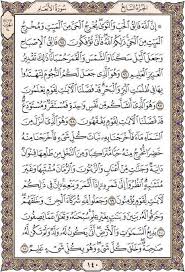 الجزء السابع
سورة الأنعام
۞ إن الله فالق الحب والنوى يخرج الحي من الميت ومخرج
الميت من الحي ذلكم الله فأنى تؤفكون ۝ فالق الإصباح
وجعل الليل سكنا والشمس والقمر حسبانا ذلك تقدير
العزيز العليم ۝ وهو الذي جعل لكم النجوم لتهتدوا
بها في ظلمت البر والبحر قد فصلنا الآيت لقوم يعلمون
۝ وهو الذي أنشأكم من نفس وحدة فمستقر ومستودع
قد فصلنا الآيت لقوم يفقهون ۝ وهو الذي أنزل من
السماء ماء فأخرجنا به نبات كل شيء فأخرجنا منه
خضرا نخرج منه حبا متراكبا ومن النخل من طلعها قنوان
دانية وجنت من أعناب والزيتون والرمان
مشتبها وغير متشبه انظروا إلى ثمره إذا أثمر وينعه إن في ذلكم
لآيت لقوم يؤمنون ۝ وجعلوا لله شركاء الجن وخلقهم
وخرقوا له بنين وبنت بغير علم سبحنه وتعلى عما يصفون
۝ بديع السموت والأرض أنى يكون له ولد ولم تكن له
صحبة وخلق كل شيء وهو بكل شيء عليم ۝
١٤٠